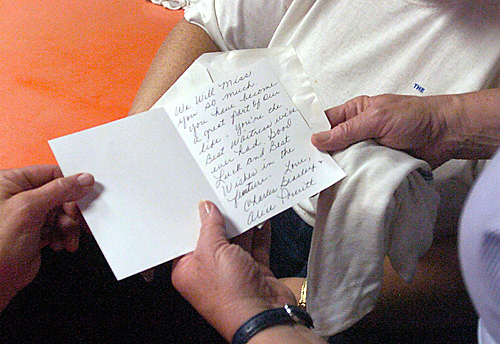 We Will Miss
you so much
you have become
a great Part of Our
life. You're the
Best Waitress we've
ever had. Good
Luck and Best
Wishes in the
future.
Love,
Charles Beasley
Alice Pruitt
THE